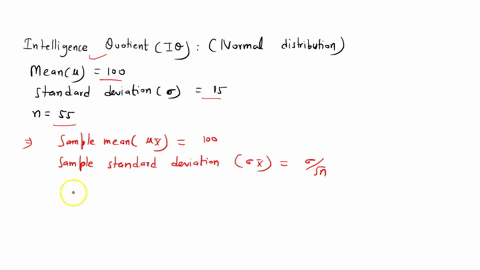 Intelligence Quotient (IQ) : (Normal distribution)
Mean(μ) = 100
Standard deviation(σ) = 15
n = 55
⇒ Sample mean( μx̄) = 100
Sample standard deviation (σx̄) = σ/√n